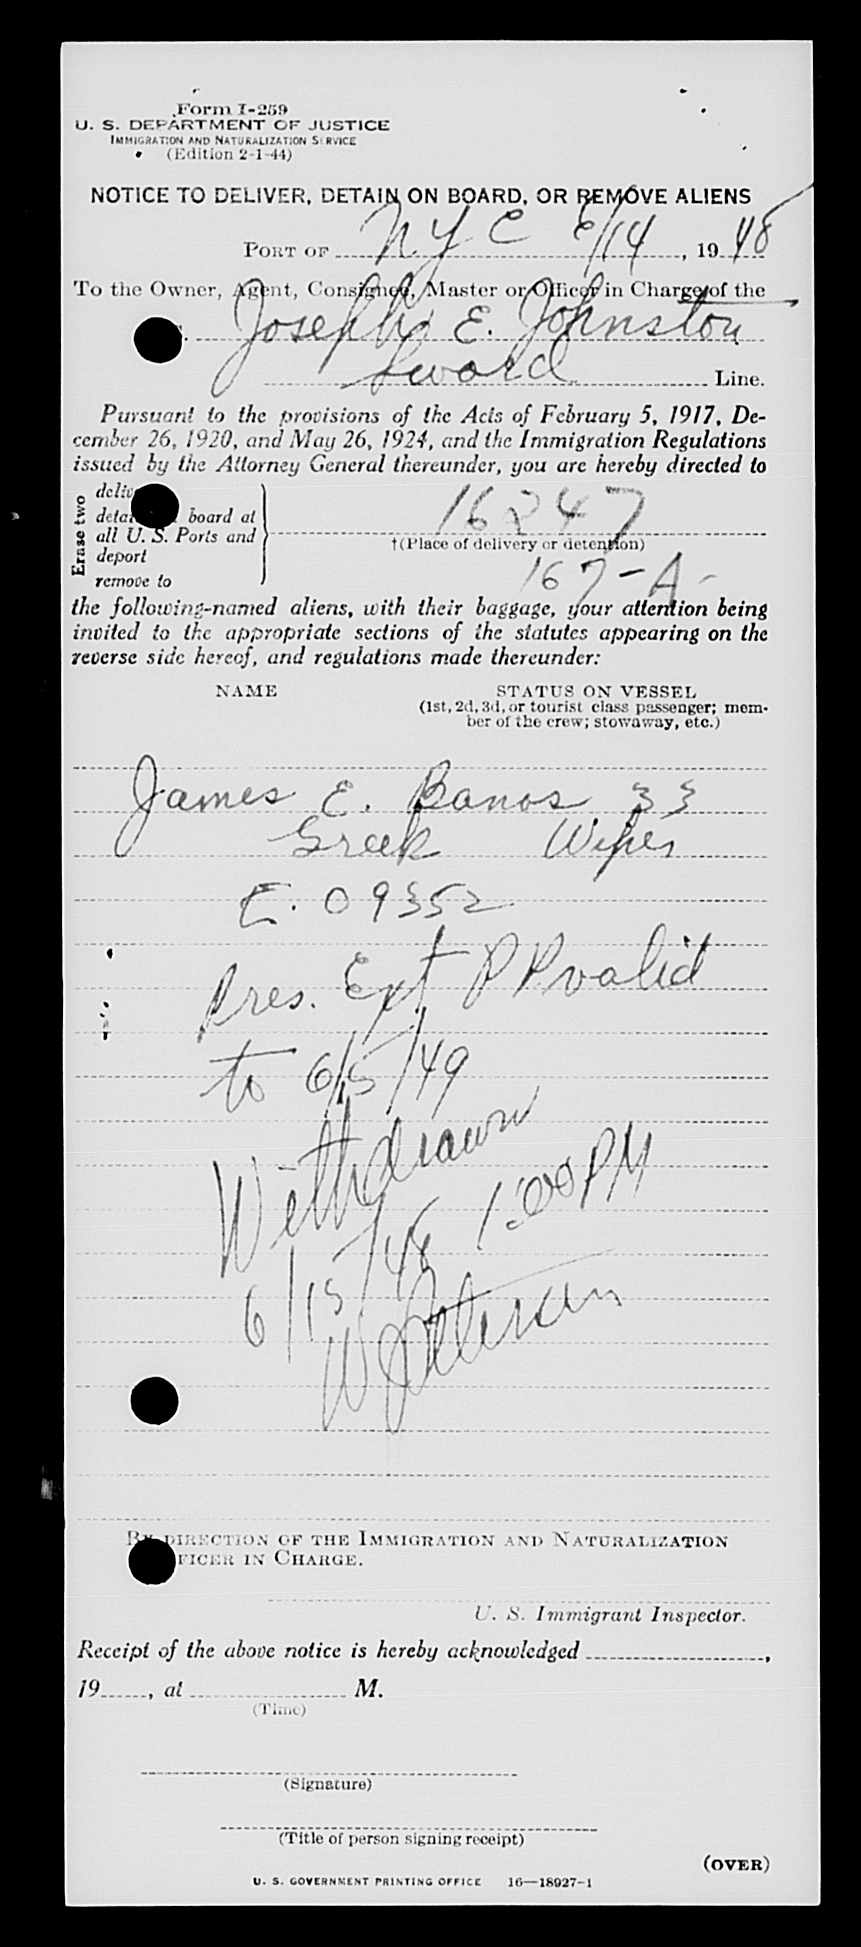 Form I-259
U. S. DEPARTMENT OF JUSTICE
IMMIGRATION AND NATURALIZATION SERVICE
(Edition 2-1-44)
NOTICE TO DELIVER, DETAIN ON BOARD, OR REMOVE ALIENS
PORT OF N Y C 6/14, 19 48
To the Owner, Agent, Consignee, Master or Officer in Charge of the
Joseph E. Johnston
Sword Line.
Pursuant to the provisions of the Acts of February 5, 1917, De-
cember 26, 1920, and May 26, 1924, and the Immigration Regulations
issued by the Attorney General thereunder, you are hereby directed to
Erase two
board at
all U. S. Ports and
deport
remove to
16247
†(Place of delivery or detention)
167-A-
the following-named aliens, with their baggage, your attention being
invited to the appropriate sections of the statutes appearing on the
reverse side hereof, and regulations made thereunder:
NAME STATUS ON VESSEL
(1st, 2d, 3d, or tourist class passenger; mem-
ber of the crew; stowaway, etc.)
James E. Banos 33
Greek Wiper
E. 09352
Pres. Ext PP valid
to 6/5/49
Withdrawn
6/15/48 1:00 PM
W Peterson
BY DIRECTION OF THE IMMIGRATION AND NATURALIZATION
FICER IN CHARGE.
U. S. Immigrant Inspector.
Receipt of the above notice is hereby acknowledged ,
19 , at M.
(Time)
(Signature)
(Title of person signing receipt)
(OVER)
U. S. GOVERNMENT PRINTING OFFICE 16—18927-1